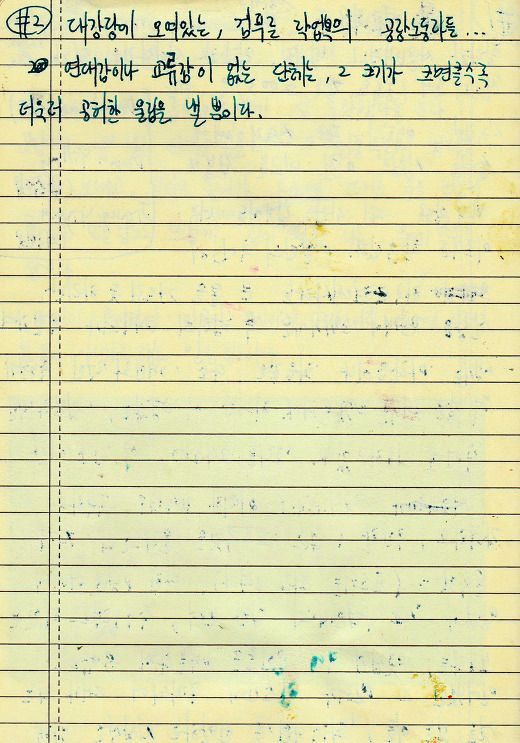 #2 대강당에 모여있는, 검푸른 작업복의 공장노동자들...
연대감이나 교류감이 없는 단체는, 그 크기가 크면클수록
더욱더 공허한 울림을 낼 뿐이다.